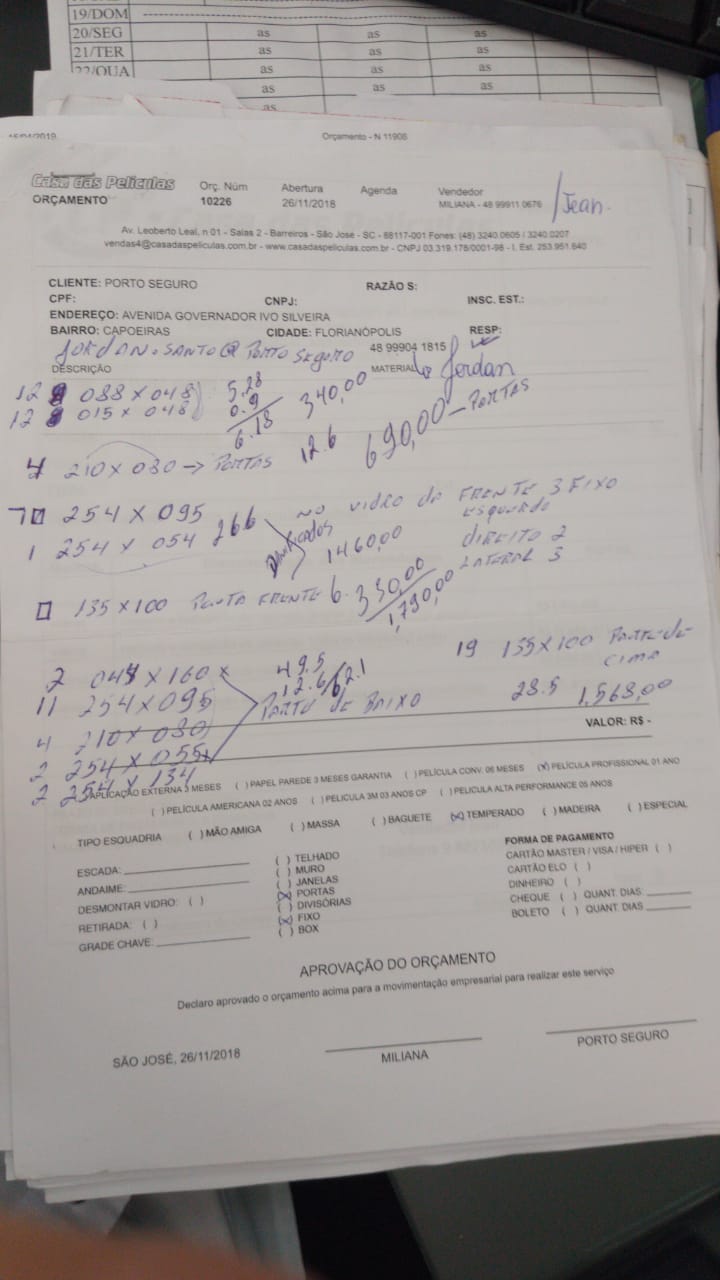 19/DOM
20/SEG as as as
21/TER as as as
22/QUA as as as
as as as
as
Orçamento - N 11906
Casa das Películas
ORÇAMENTO
Orç. Núm Abertura Agenda Vendedor
10226 26/11/2018 MILIANA - 48 99911 0676 /Jean.
Av. Leoberto Leal, n 01 - Salas 2 - Barreiros - São José - SC - 88117-001 Fones: (48) 3240.0605 / 3240.0207
vendas4@casadaspeliculas.com.br - www.casadaspeliculas.com.br - CNPJ 03.319.178/0001-98 - I. Est. 253.951.640
CLIENTE: PORTO SEGURO RAZÃO S:
CPF: CNPJ: INSC. EST.:
ENDEREÇO: AVENIDA GOVERNADOR IVO SILVEIRA
BAIRRO: CAPOEIRAS CIDADE: FLORIANÓPOLIS RESP:
JORDAN.SANTO@PORTO SEGURO 48 99904 1815
DESCRIÇÃO MATERIAL Jordan
12 088 x 048 5.28 340,00
12 015 x 048 0.9
6.18
4 210 x 080 → PORTAS 12.6 690,00 - PORTAS
254 x 095 NO VIDRO DA FRENTE 3 FIXO
1 254 x 054 266 ESQUERDO
DANIFICADOS 1460,00 DIREITO 2
LATERAL 3
135 x 100 PORTA FRENTE 6. 330,00
1,790,00
19 135 x 100 PARTE DE CIMA
2 048 x 160 x 49.5
11 254 x 095 12.6/62.1
PARTE DE BAIXO 28.5 1,568,00
4 210 x 080
2 254 x 055
2 254 x 134
VALOR: R$ -
APLICAÇÃO EXTERNA 3 MESES ( ) PAPEL PAREDE 3 MESES GARANTIA ( ) PELÍCULA CONV. 06 MESES (X) PELÍCULA PROFISSIONAL 01 ANO
( ) PELÍCULA AMERICANA 02 ANOS ( ) PELICULA 3M 03 ANOS CP ( ) PELICULA ALTA PERFORMANCE 05 ANOS
TIPO ESQUADRIA ( ) MÃO AMIGA ( ) MASSA ( ) BAGUETE (X) TEMPERADO ( ) MADEIRA ( ) ESPECIAL
ESCADA:
ANDAIME:
DESMONTAR VIDRO: ( )
RETIRADA: ( )
GRADE CHAVE:
( ) TELHADO
( ) MURO
( ) JANELAS
(X) PORTAS
( ) DIVISÓRIAS
(X) FIXO
( ) BOX
FORMA DE PAGAMENTO
CARTÃO MASTER / VISA / HIPER ( )
CARTÃO ELO ( )
DINHEIRO ( )
CHEQUE ( ) QUANT. DIAS
BOLETO ( ) QUANT. DIAS
APROVAÇÃO DO ORÇAMENTO
Declaro aprovado o orçamento acima para a movimentação empresarial para realizar este serviço
SÃO JOSÉ, 26/11/2018 MILIANA PORTO SEGURO